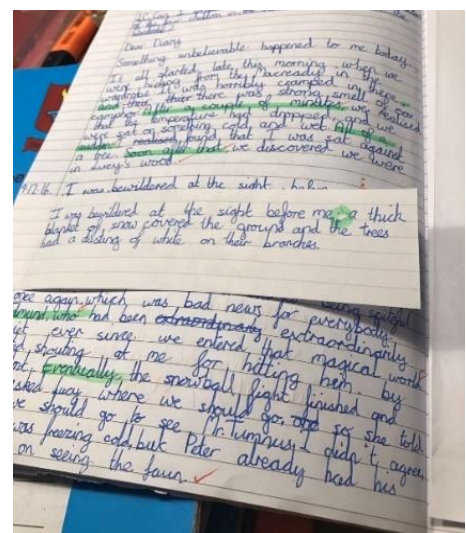 Dear Diary,
Something unbelievable happened to me today.
It all started late this morning, when we
were hiding from the Macready in the
wardrobe. It was horribly cramped in there
and there was a strong smell of
camphor. After a couple of minutes, we realised
that the temperature had dropped, and we
were sat on something cold and wet. All of a
sudden I realised found that I was sat against
a tree. Soon after that, we discovered we were
in Lucy's world.
9/12/16 I was bewildered at the sight
I was bewildered at the sight before me; a thick
blanket of snow covered the ground and the trees
had a dusting of white on their branches.
being spiteful
once again, which was bad news for everybody!
who had been extraordinarily extraordinarily
ever since we entered that magical world
shouting at me for hitting him by
Eventually, the snowball fight finished and
asked Lucy where we should go, and so she told
we should go to see Mr. Tumnus. I didn't agree,
was freezing cold, but Peter already had his
on seeing the faun.